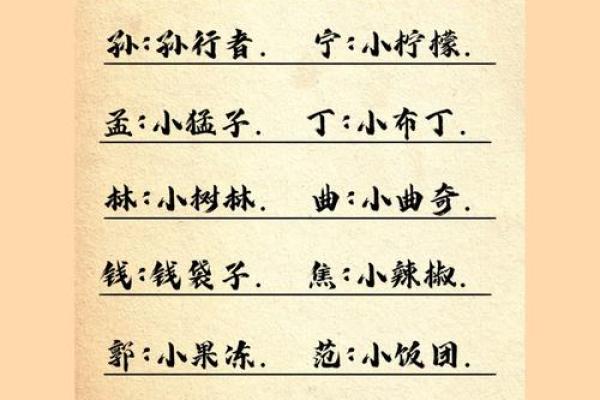 孙:孙行者. 宁:小柠檬.
孟:小猛子. 丁:小布丁.
林:小树林. 曲:小曲奇.
钱:钱袋子. 焦:小辣椒.
郭:小果冻. 范:小饭团.